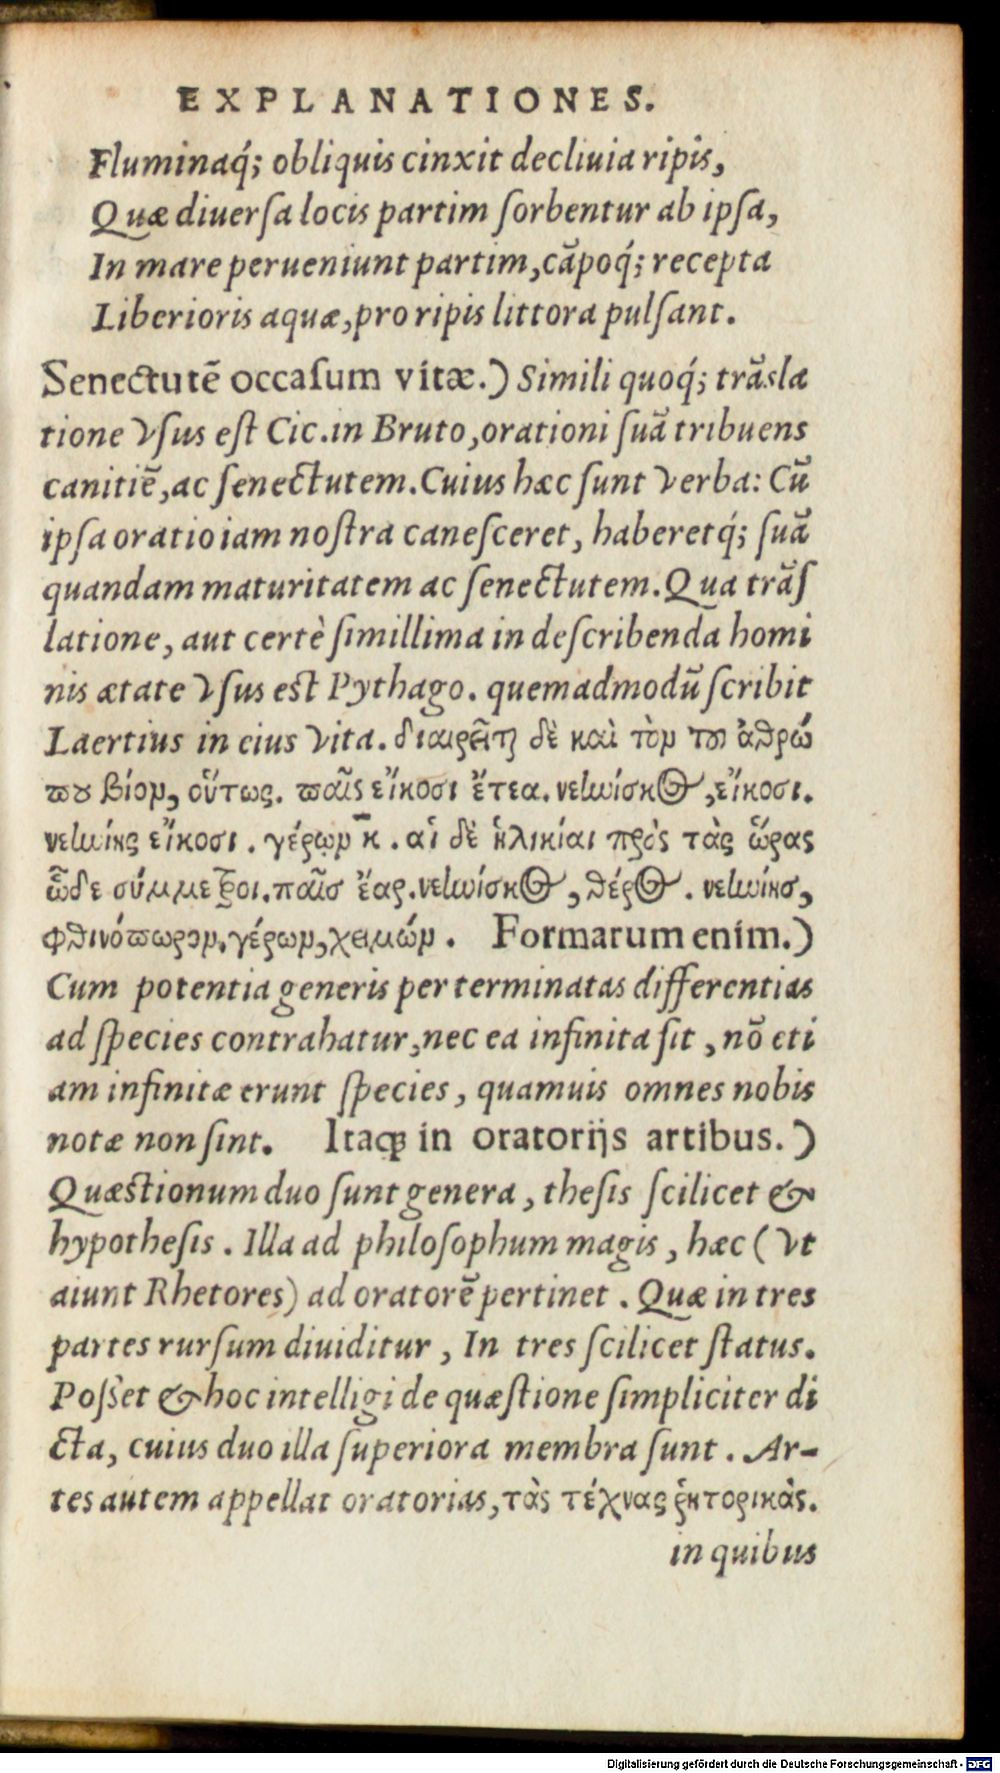 EXPLANATIONES.
Fluminaq́; obliquis cinxit decliuia ripis,
Quæ diuersa locis partim sorbentur ab ipsa,
In mare perueniunt partim, cāpoq́; recepta
Liberioris aquæ, pro ripis littora pulsant.
Senectutē occasum vitæ.) Simili quoq́; trāsla
tione vsus est Cic. in Bruto, orationi suā tribuens
canitiē, ac senectutem. Cuius hæc sunt verba: Cū
ipsa oratio iam nostra canesceret, haberetq́; suā
quandam maturitatem ac senectutem. Qua trās
latione, aut certè simillima in describenda homi
nis ætate vsus est Pythago. quemadmodū scribit
Laertius in eius vita. διαιρεῖτ δὲ καὶ τὸν τοῦ ἀθρώ
που βίον, οὕτως. παῖς εἴκοσι ἔτεα. νεηνίσκος, εἴκοσι.
νεηνίης εἴκοσι. γέρων κ̄. αἱ δὲ ἡλικίαι πρὸς τὰς ὥρας
ὧδε σύμμετροι. παῖσ ἔαρ. νεηνίσκος, θέρος. νεηνίησ,
φθινόπωρον. γέρων, χειμών. Formarum enim.)
Cum potentia generis per terminatas differentias
ad species contrahatur, nec ea infinita sit, nō eti
am infinitæ erunt species, quamuis omnes nobis
notæ non sint. Itaqꝫ in oratorijs artibus.)
Quæstionum duo sunt genera, thesis scilicet &
hypothesis. Illa ad philosophum magis, hæc (vt
aiunt Rhetores) ad oratorē pertinet. Quæ in tres
partes rursum diuiditur, In tres scilicet status.
Posset & hoc intelligi de quæstione simpliciter di
cta, cuius duo illa superiora membra sunt. Ar-
tes autem appellat oratorias, τὰς τέχνας ῥητορικὰς.
in quibus
Digitalisierung gefördert durch die Deutsche Forschungsgemeinschaft - DFG